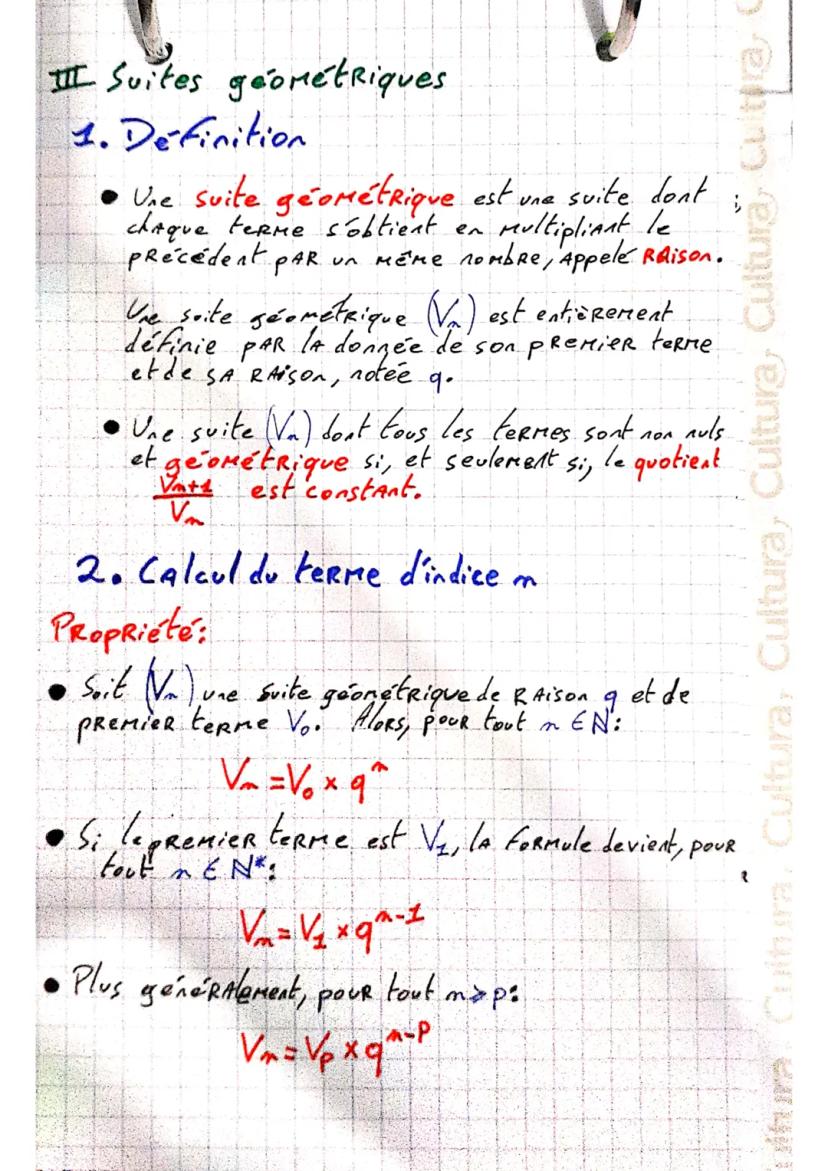 III Suites géométriques
1. Définition
• Une suite géométrique est une suite dont
chaque terme s'obtient en multipliant le
précédent par un même nombre, appelé raison.
Une suite géométrique (Vn) est entièrement
définie par la donnée de son premier terme
et de sa raison, notée q.
• Une suite (Vn) dont tous les termes sont non nuls
et géométrique si, et seulement si, le quotient
Vn+1/Vn est constant.
2. Calcul du terme d'indice n
Propriété:
• Soit (Vn) une suite géométrique de raison q et de
premier terme V₀. Alors, pour tout n ∈ ℕ:
Vn = V₀ × qⁿ
• Si le premier terme est V₁, la formule devient, pour
tout n ∈ ℕ*:
Vn = V₁ × qⁿ⁻¹
• Plus généralement, pour tout n ≥ p:
Vn = Vp × qⁿ⁻ᵖ
Cultura, Cultura, Cultura, Cultura, Cultura, Cultura